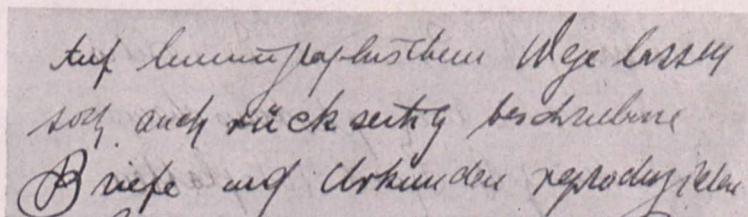 Auf luminographischem Wege lassen
sich auch rückseitig beschriebene
Briefe und Urkunden reproduzieren